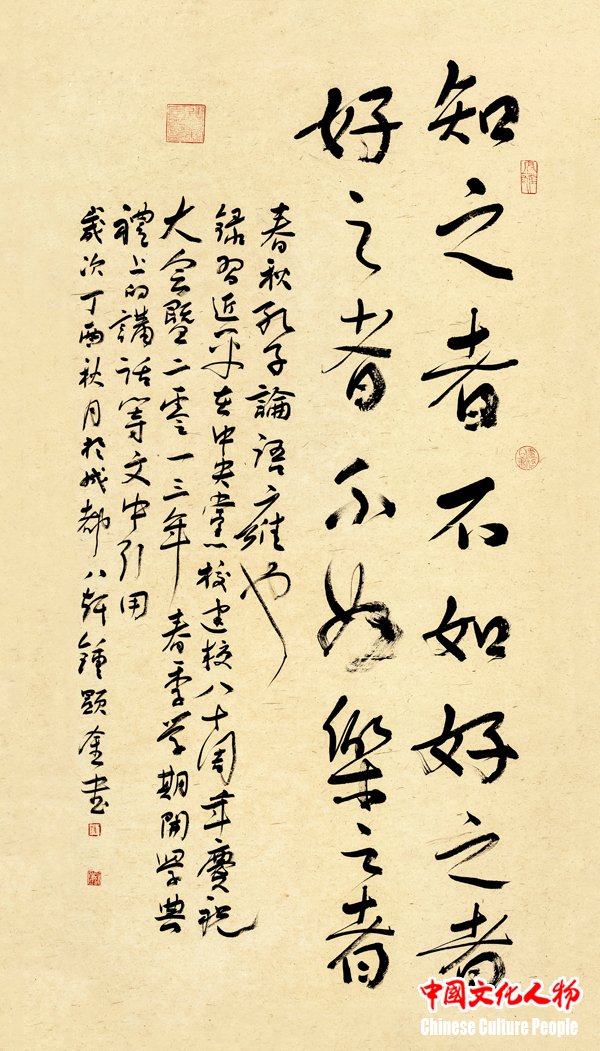 知之者不如好之者
好之者不如樂之者
春秋孔子論語雍也
録習近平在中央黨校建校八十周年慶祝
大会暨二零一三年春季学期開學典
禮上的講話等文中引用
歲次丁酉秋月於成都八轩鍾顯金書
中國文化人物
Chinese Culture People